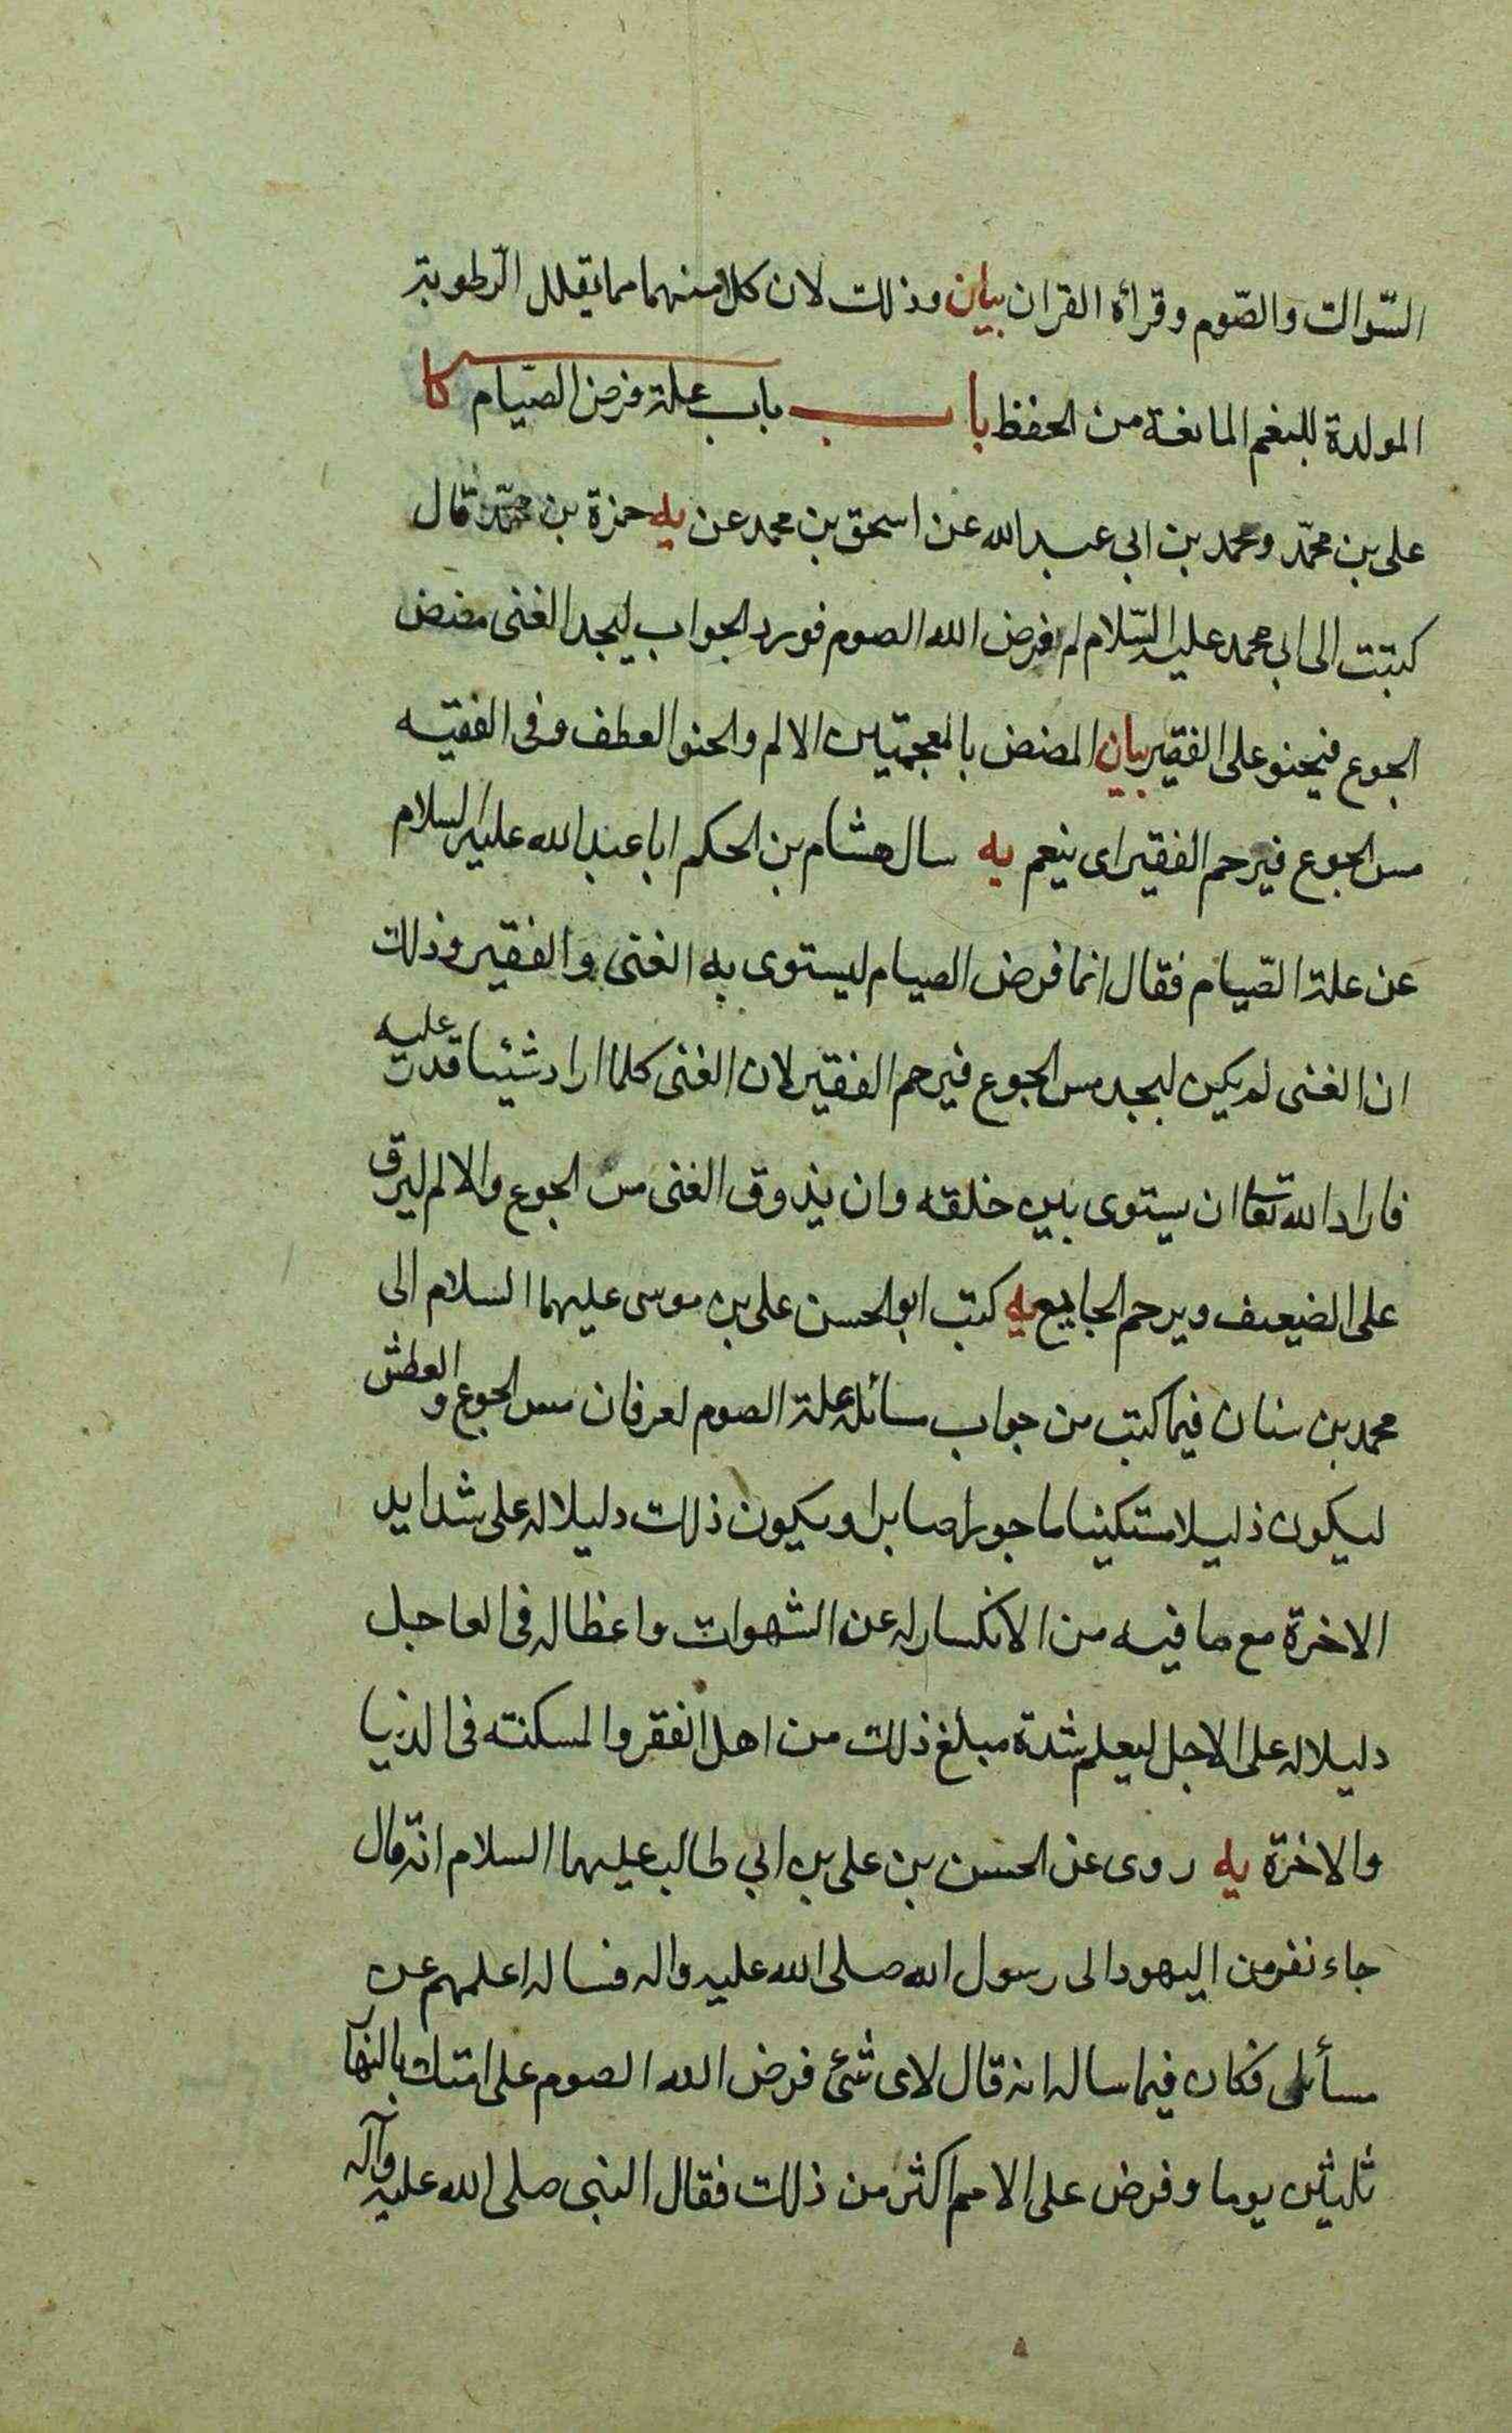 السّواك والصّوم وقرأة القران بيان وذلك لان كلا منهما مما يقلل الرّطوبة
المولدة للبلغم المانعة من الحفظ باب باب علة فرض الصّيام كا
على بن محمّد ومحمد بن ابى عبد الله عن اسحق بن محمد عن يه حمزة بن محمّد قال
كتبت الى ابى محمد عليه السّلام لم فرض الله الصوم فورد الجواب ليجد الغنى مضض
الجوع فيحنو على الفقير بيان المضض بالمعجمتين الالم والحنو العطف وفى الفقيه
مس الجوع فيرحم الفقير اى ينعم يه سال هشام بن الحكم ابا عبد الله عليه السلام
عن علة الصّيام فقال انما فرض الصيام ليستوى به الغنى والفقير وذلك
ان الغنى لم يكن ليجد مس الجوع فيرحم الفقير لان الغنى كلما اراد شيئا قدر عليه
فاراد الله تعا ان يستوى بين خلقه وان يذوق الغنى مس الجوع والالم ليرق
على الضيعف ويرحم الجايع يه كتب ابو الحسن على بن موسى عليهما السلام الى
محمد بن سنان فيما كتب من جواب مسائله علة الصوم لعرفان مس الجوع والعطش
ليكون ذليلا مستكينا ماجورا صابرا ويكون ذلك دليلا له على شدايد
الاخرة مع ما فيه من الانكسار له عن الشهوات واعظا له فى العاجل
دليلا له على الاجل ليعلم شدة مبلغ ذلك من اهل الفقر والمسكنة فى الدنيا
والاخرة يه روى عن الحسن بن على بن ابى طالب عليهما السلام انّه قال
جاء نفر من اليهود الى رسول الله صلى الله عليه واله فساله اعلمهم عن
مسأئل فكان فيما ساله انه قال لاى شئ فرض الله الصوم على امتك بالنهار
ثلثين يوما وفرض على الامم اكثر من ذلك فقال النبى صلى الله عليه وآله